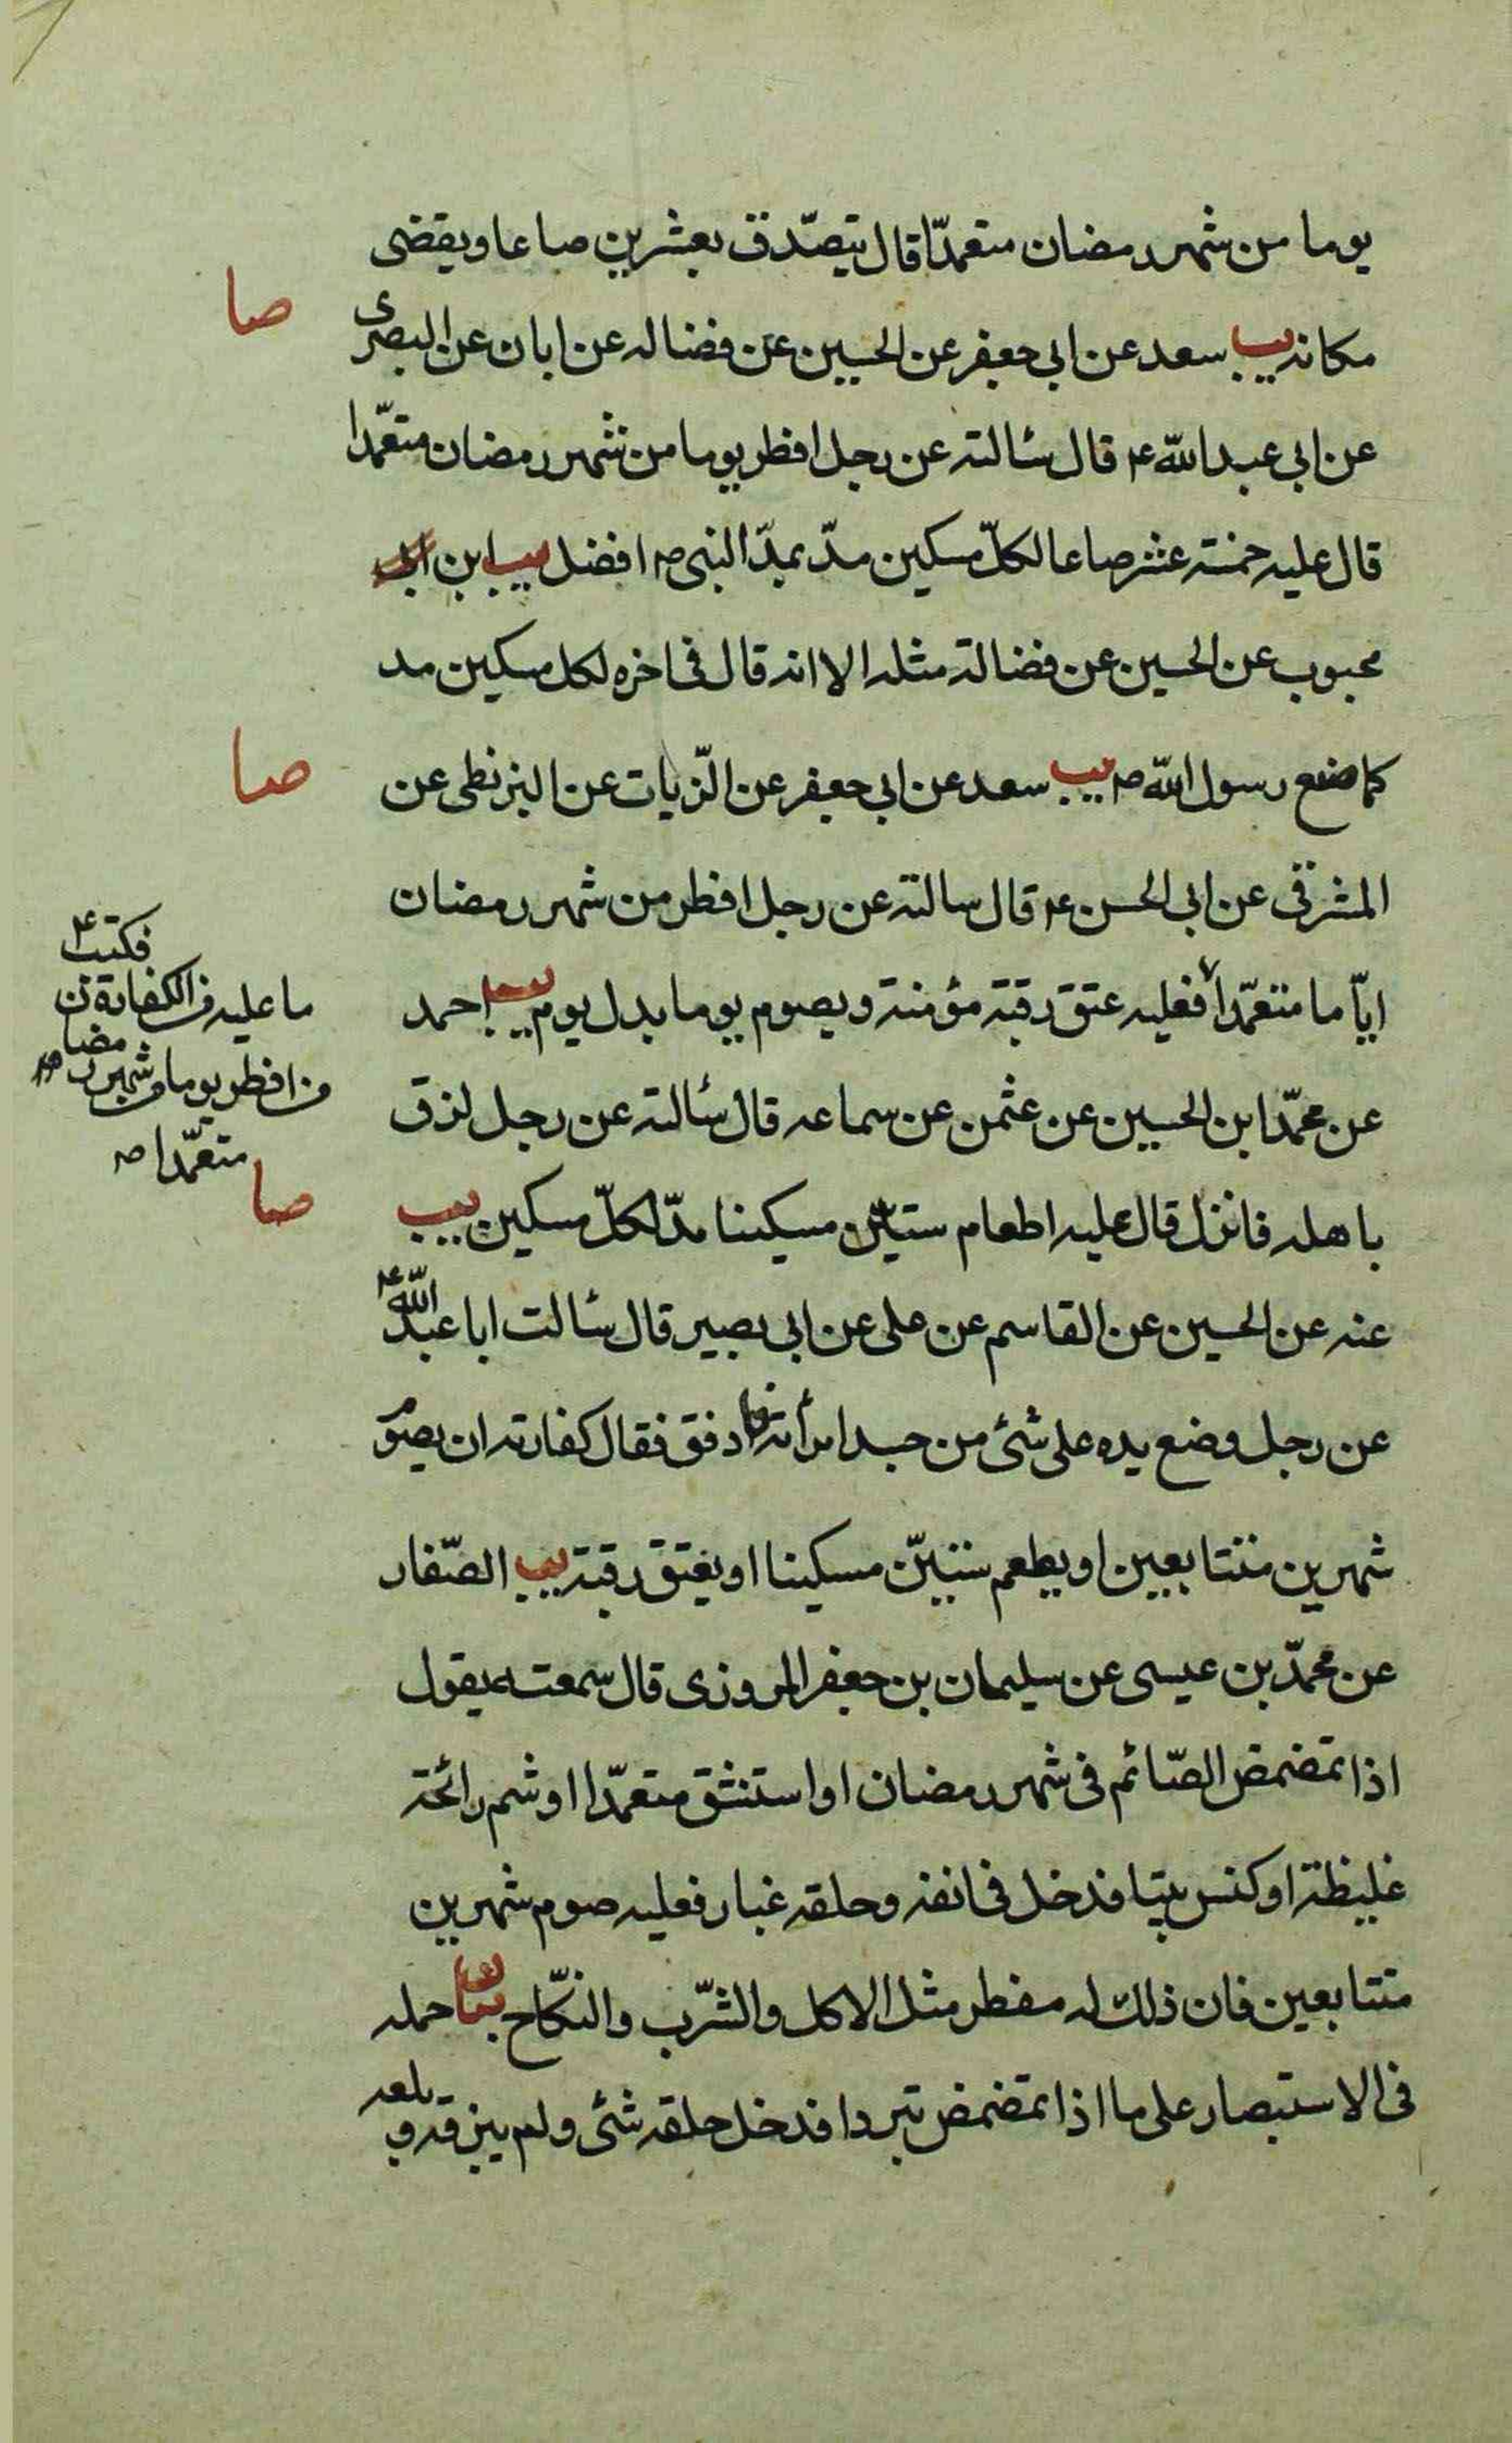 يوما من شهر رمضان متعمدّا قال يتصدّق بعشرين صاعا ويقضى
صا
مكانه يب سعد عن ابي جعفر عن الحسين عن فضاله عن ابان عن البصرى
عن ابي عبد اللّه ع قال سئالته عن رجل افطر يوما من شهر رمضان متعمّدا
قال عليه خمسة عشر صاعا لكلّ مسكين مدّ بمدّ النبى ص افضل يب ابن
محبوب عن الحسين عن فضالة مثله الا انه قال فى اخره لكل مسكين مد
صا
كما صنع رسول اللّه ص يب سعد عن ابي جعفر عن الزّيات عن البزنطى عن
المشرقى عن ابي الحسن ع قال سالته عن رجل افطر من شهر رمضان
ايّاما متعمّدا فعليه عتق رقبة مؤمنة ويصوم يوما بدل يوم يب احمد
فكتب ع
ما عليه من الكفارة
من افطر يوما من شهر رمضان
متعمّدا
عن محمّد ابن الحسين عن عثمن عن سماعه قال سئالته عن رجل لزق
صا
باهله فانزل قال عليه اطعام ستيّن مسكينا مدّ لكلّ مسكين يب
عنه عن الحسين عن القاسم عن على عن ابي بصير قال سئالت ابا عبد اللّه ع
عن رجل وضع يده على شئ من جسد امرأته فادفق فقال كفارته ان يصوم
شهرين متتابعين او يطعم ستيّن مسكينا او يعتق رقبة يب الصّفار
عن محمّد بن عيسى عن سليمان بن جعفر المروزى قال سمعته يقول
اذا تمضمض الصّائم فى شهر رمضان او استنشق متعمّدا او شم رائحة
غليظة او كنس بيتا فدخل فى انفه وحلقه غبار فعليه صوم شهرين
متتابعين فان ذلك له مفطر مثل الاكل والشّرب والنكّاح بيان حمله
فى الاستبصار على ما اذا تمضمض تبردا فدخل حلقه شئ ولم يبزقه وبلعه